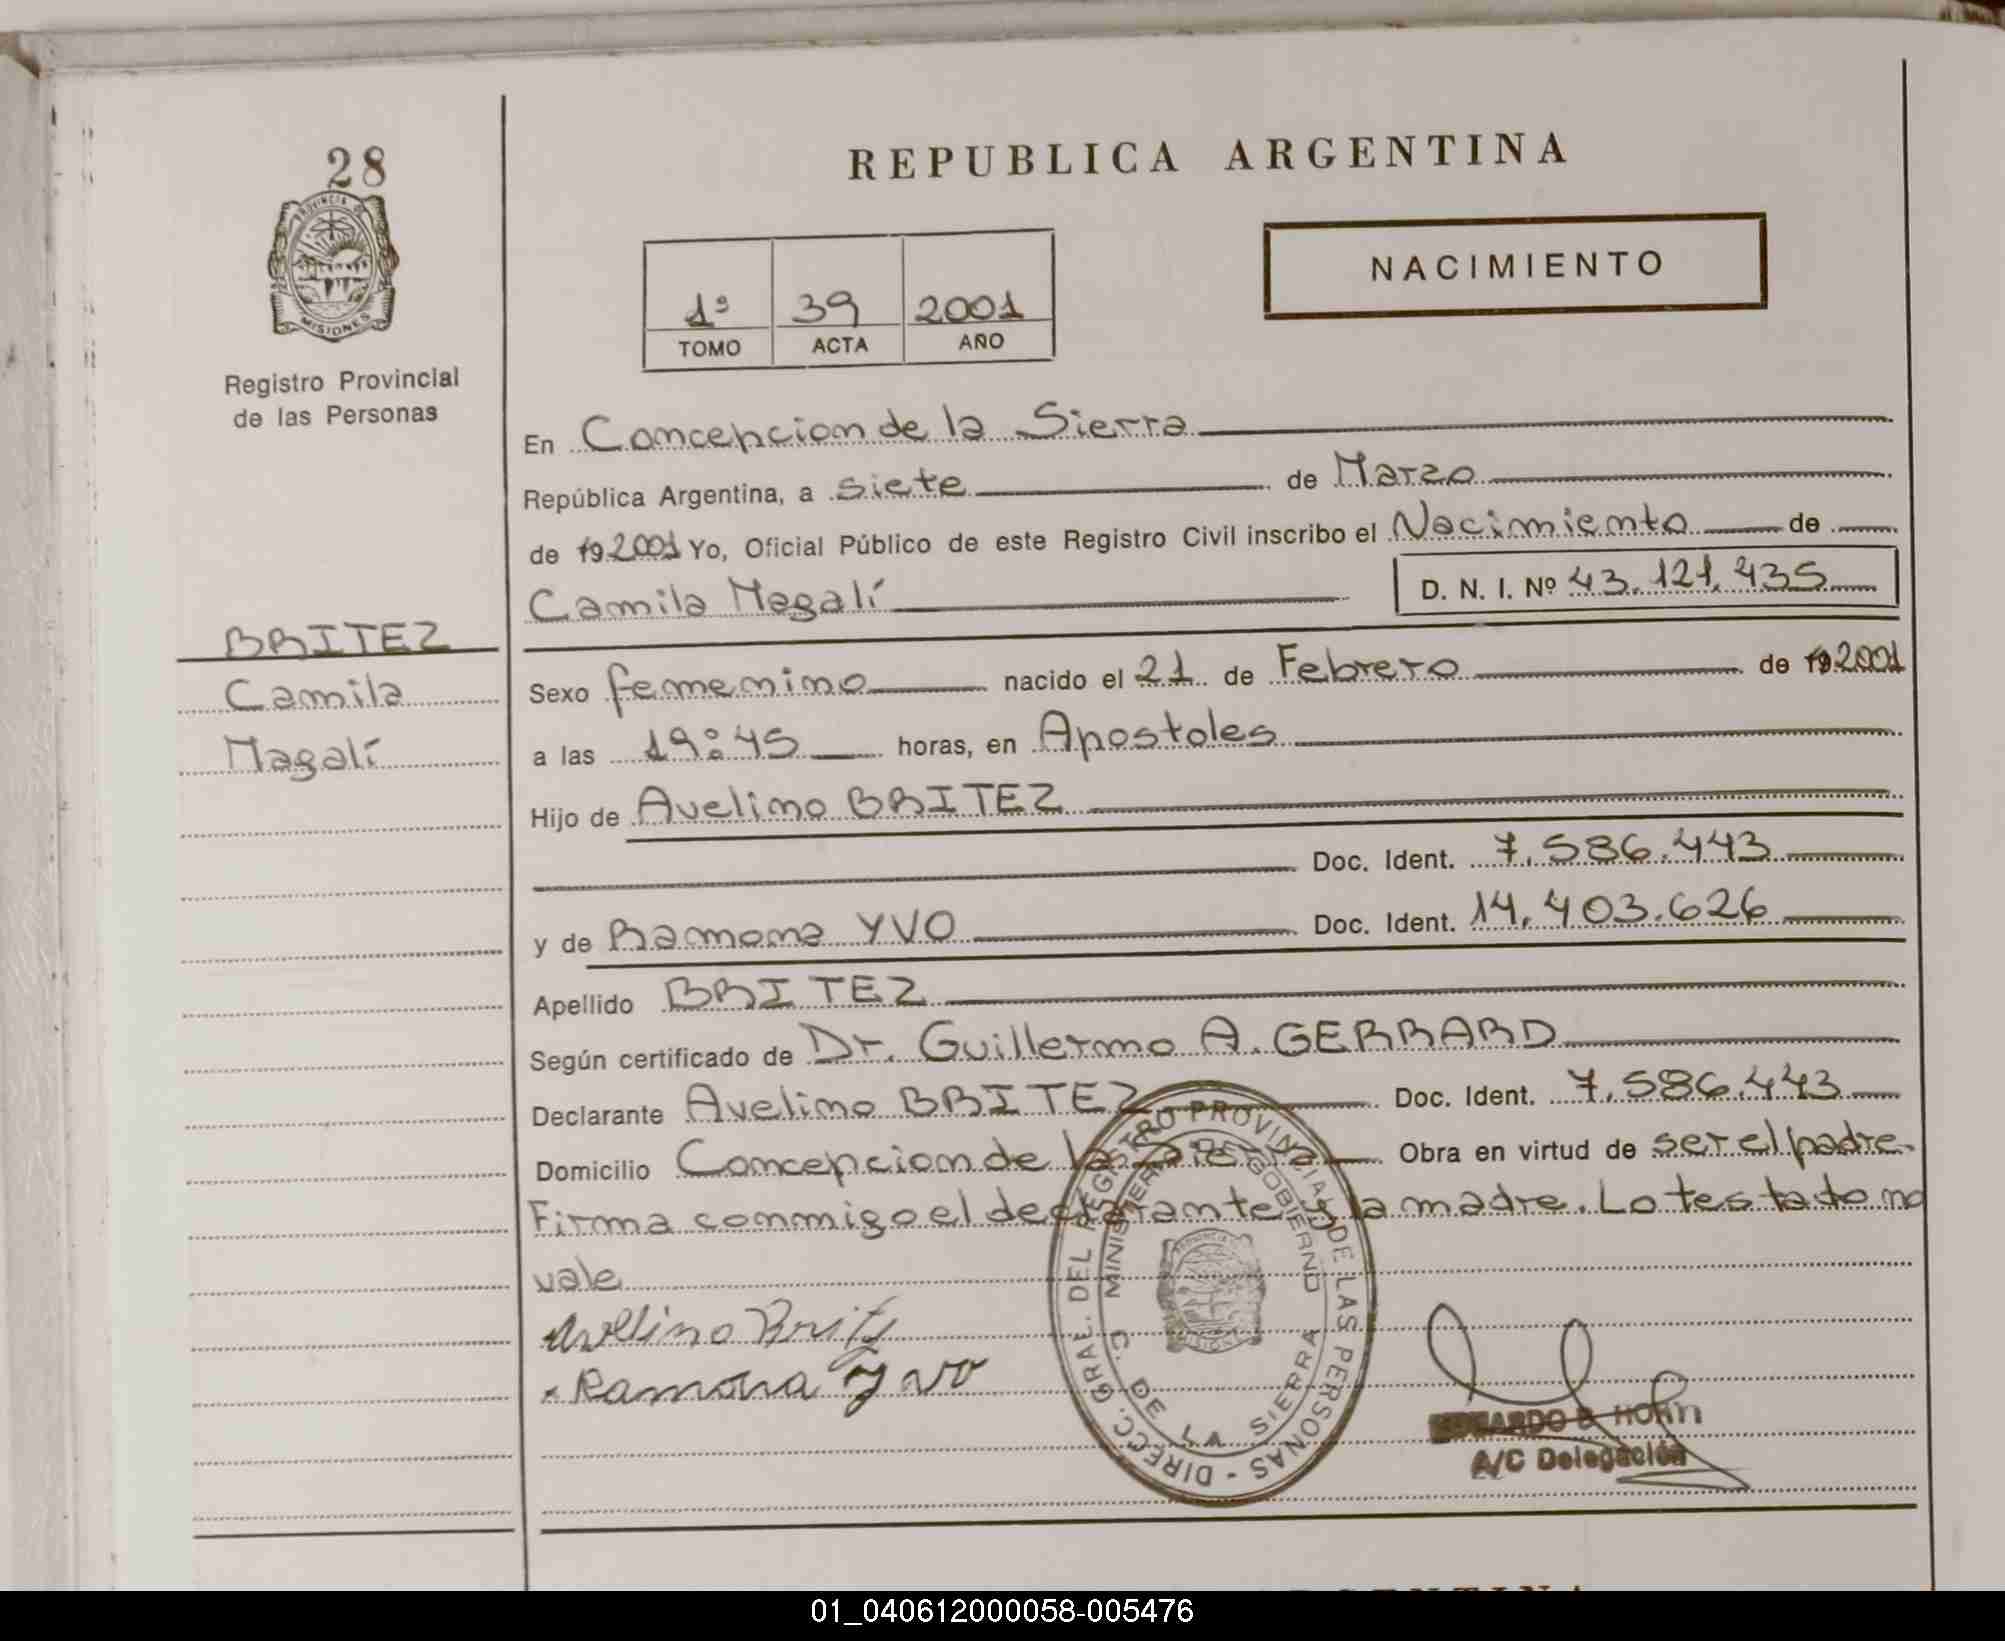 28
PROVINCIA DE
MISIONES
Registro Provincial
de las Personas
BRITEZ
Camila
Magalí
REPUBLICA ARGENTINA
1º 39 2001
TOMO ACTA AÑO
NACIMIENTO
En Concepcion de la Sierra
República Argentina, a siete de Marzo
de 19 2001 Yo, Oficial Público de este Registro Civil inscribo el Nacimiento de
Camila Magalí D. N. I. Nº 43.121.435
Sexo femenino nacido el 21 de Febrero de 19 2001
a las 19:45 horas, en Apostoles
Hijo de Avelino BRITEZ
Doc. Ident. 7.586.443
y de Ramona YVO Doc. Ident. 14.403.626
Apellido BRITEZ
Según certificado de Dr. Guillermo A. GERRARD
Declarante Avelino BRITEZ Doc. Ident. 7.586.443
Domicilio Concepcion de la Sierra Obra en virtud de ser el padre.
Firma conmigo el declarante y la madre. Lo testado no
vale
Avelino Britez
Ramona Yvo
DIRECC. GRAL. DEL REGISTRO PROVINCIAL DE LAS PERSONAS -
MINISTERIO DE GOBIERNO
C. DE LA SIERRA
EDUARDO B. HORN
A/C Delegación
01_040612000058-005476